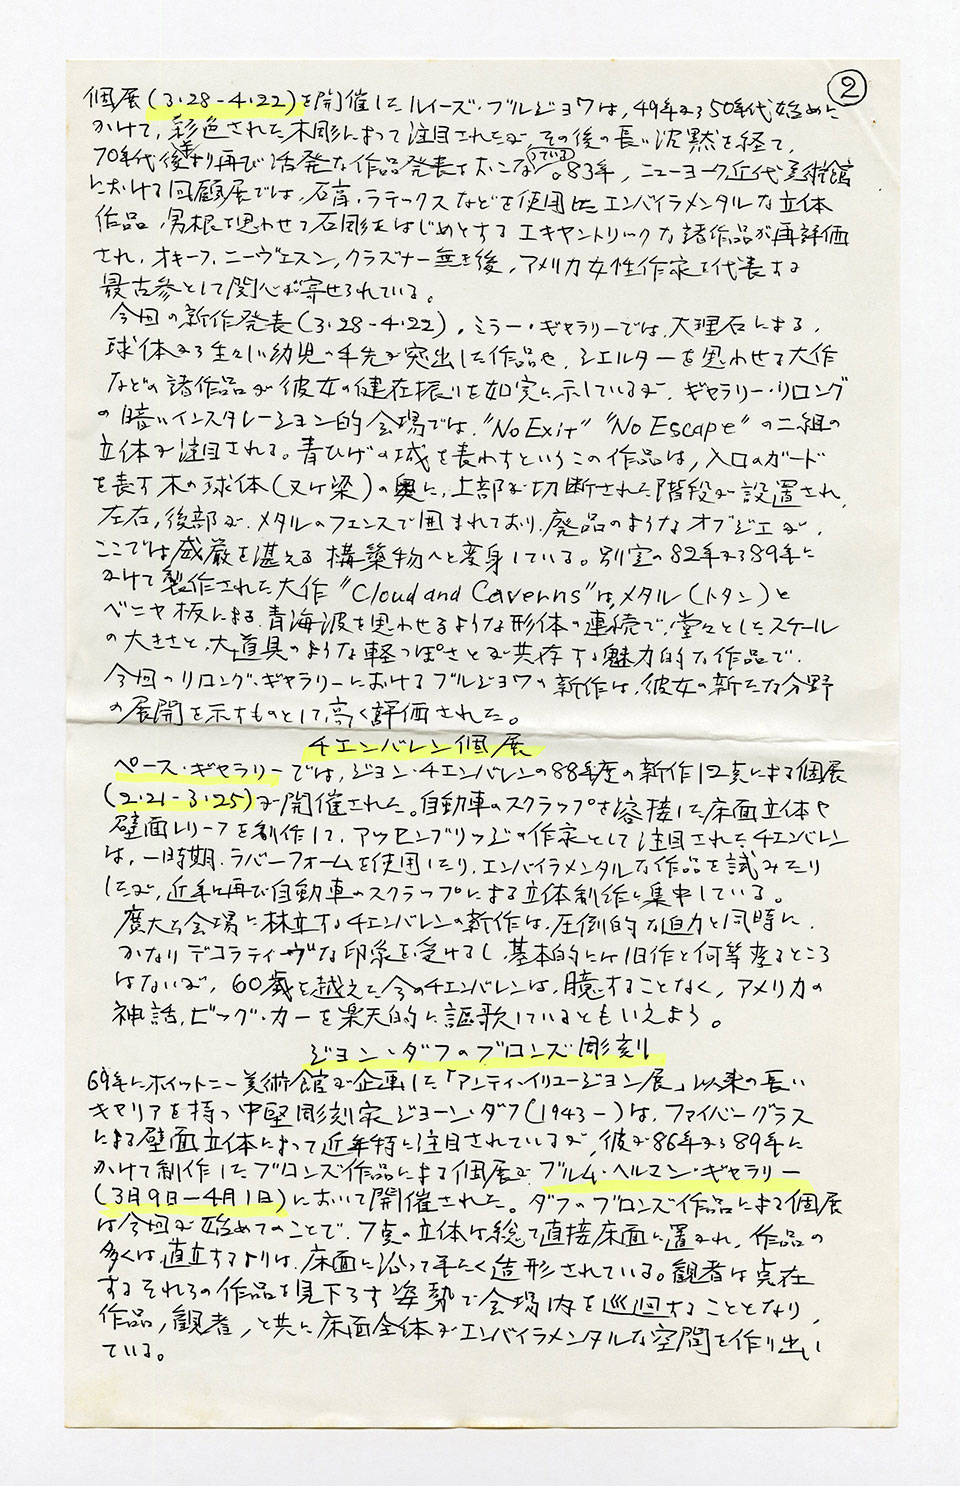 ②
個展(3·28-4·22)を開催したルイーズ·ブルジョワは,49年から50年代始めに
かけて,彩色された木彫によって注目されたが,その後の長い沈黙を経て,
70年代後半より再び活発な作品発表を行っている。83年,ニューヨーク近代美術館
における回顧展では,石膏,ラテックスなどを使用したエンバイラメンタルな立体
作品,男根を思わせる石彫をはじめとするエキセントリックな諸作品が再評価
され,オキーフ,ニーヴェルスン,クラズナー無き後,アメリカ女性作家を代表する
最古参として関心が寄せられている。
今回の新作発表(3·28-4·22),ミラー·ギャラリーでは,大理石による,
球体から生々しい幼児の手先が突出した作品や,シェルターを思わせる大作
などの諸作品が彼女の健在振りを如実に示しているが,ギャラリー·リロング
の暗いインスタレーション的会場では,"No Exit" "No Escape"の二組の
立体が注目される。青ひげの城を表わすというこの作品は,入口のガード
を表す木の球体(又は梁)の奥に,上部が切断された階段が設置され,
左右,後部が,メタルのフェンスで囲まれており,廃品のようなオブジェが,
ここでは威厳を湛える構築物へと変身している。別室の82年から89年に
かけて製作された大作"Cloud and Caverns"は,メタル(トタン)と
ベニヤ板による,青海波を思わせるような形体の連続で,堂々としたスケール
の大きさと,大道具のような軽っぽさとが共存する魅力的な作品で,
今回のリロング·ギャラリーにおけるブルジョワの新作は,彼女の新たな分野
の展開を示すものとして,高く評価された。
チェンバレン個展
ペース·ギャラリーでは,ジョン·チェンバレンの88年度の新作12点による個展
(2·21-3·25)が開催された。自動車のスクラップを溶接した床面立体や
壁面レリーフを創作して,アッセンブリッジの作家として注目されたチェンバレン
は,一時期,ラバーフォームを使用したり,エンバイラメンタルな作品を試みたり
したが,近年は再び自動車のスクラップによる立体制作に集中している。
広大な会場に林立するチェンバレンの新作は,圧倒的な迫力と同時に,
かなりデコラティーヴな印象を受けるし,基本的には旧作と何等変るところ
はないが,60歳を越えた今のチェンバレンは,臆することなく,アメリカの
神話,ビッグ·カーを楽天的に謳歌しているともいえよう。
ジョン·ダフのブロンズ彫刻
69年にホイットニー美術館が企画した「アンティ·イリュージョン展」以来の長い
キャリアを持つ中堅彫刻家ジョーン·ダフ(1943-)は,ファイバーグラス
による壁面立体によって近年特に注目されているが,彼が86年から89年に
かけて制作したブロンズ作品による個展が,ブルム·ヘルマン·ギャラリー
(3月9日-4月1日)において開催された。ダフのブロンズ作品による個展
は今回が始めてのことで,7点の立体は総て直接床面に置かれ,作品の
多くは,直立するよりは,床面に沿って平たく造形されている。観者は点在
するそれらの作品を見下ろす姿勢で会場内を巡回することとなり,
作品,観者,と共に床面全体がエンバイラメンタルな空間を作り出し
ている。